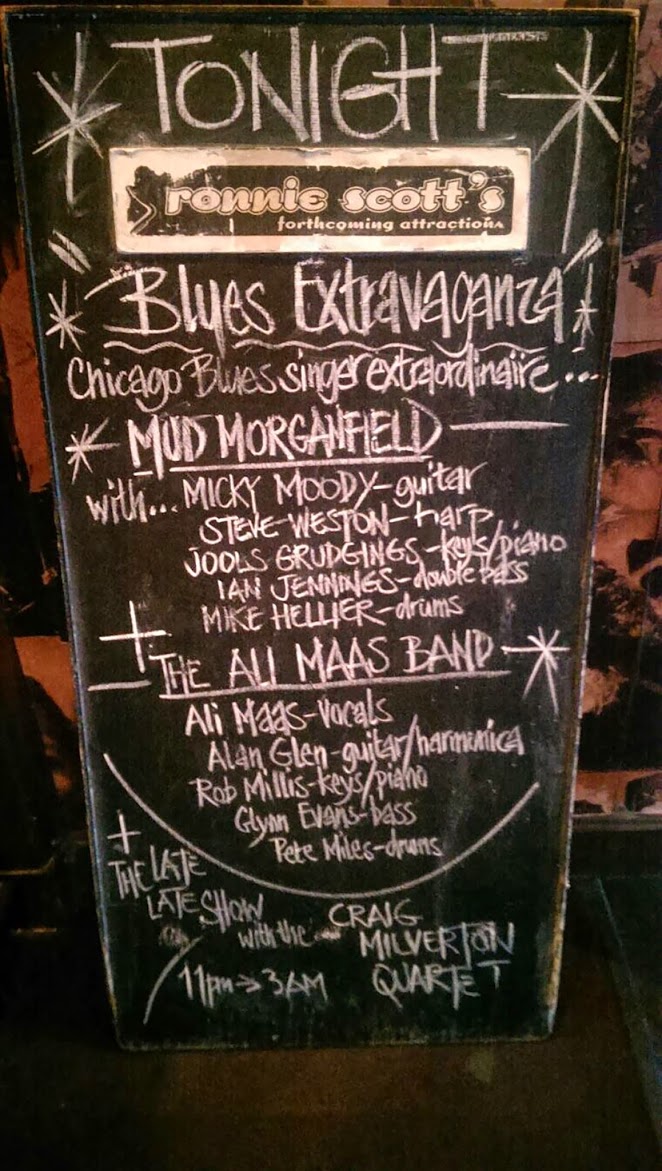 TONIGHT
ronnie scott's
forthcoming attractions
Blues Extravaganza
Chicago Blues singer extraordinaire...
MUD MORGANFIELD
with... MICKY MOODY-guitar
STEVE WESTON-harp
JOOLS GRUDGINGS-keys/piano
IAN JENNINGS-double bass
MIKE HELLIER-drums
+ THE ALI MAAS BAND
Ali Maas-vocals
Alan Glen-guitar/harmonica
Rob Millis-keys/piano
Glynn Evans-bass
Pete Miles-drums
+
THE LATE
LATE SHOW
with the CRAIG
MILVERTON
QUARTET
11pm→3AM